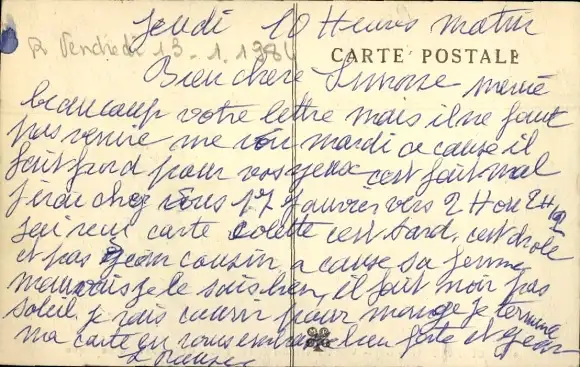 Jeudi 10 Heures matin
R Vendredi 13-1.1984
CARTE POSTALE
Bien chere Simone merci
beaucoup votre lettre mais il ne faut
pas venire me voir mardi a cause il
fait froid pour vos yeux cest fait mal
jirai chez vous 17 Janvier vers 2 H ou 2H 1/2
jai reçu carte Colette cest tard. cest drole
et pas Jean cousin, a cause sa femme
mauvais je le sais bien, il fait noir pas
soleil. je vais courir pour mange je termine
ma carte en vous embrasse bien forte et Jean